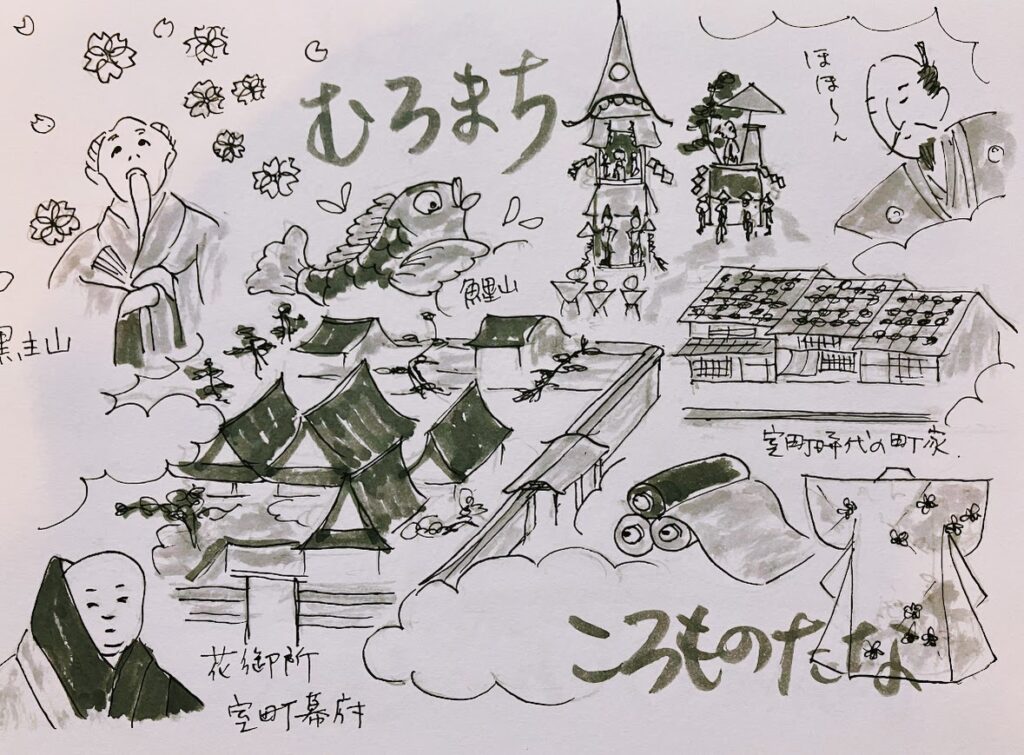 むろまち
ほほ〜ん
鯉山
黒主山
室町時代の町家.
花御所
室町幕府
ころものたな